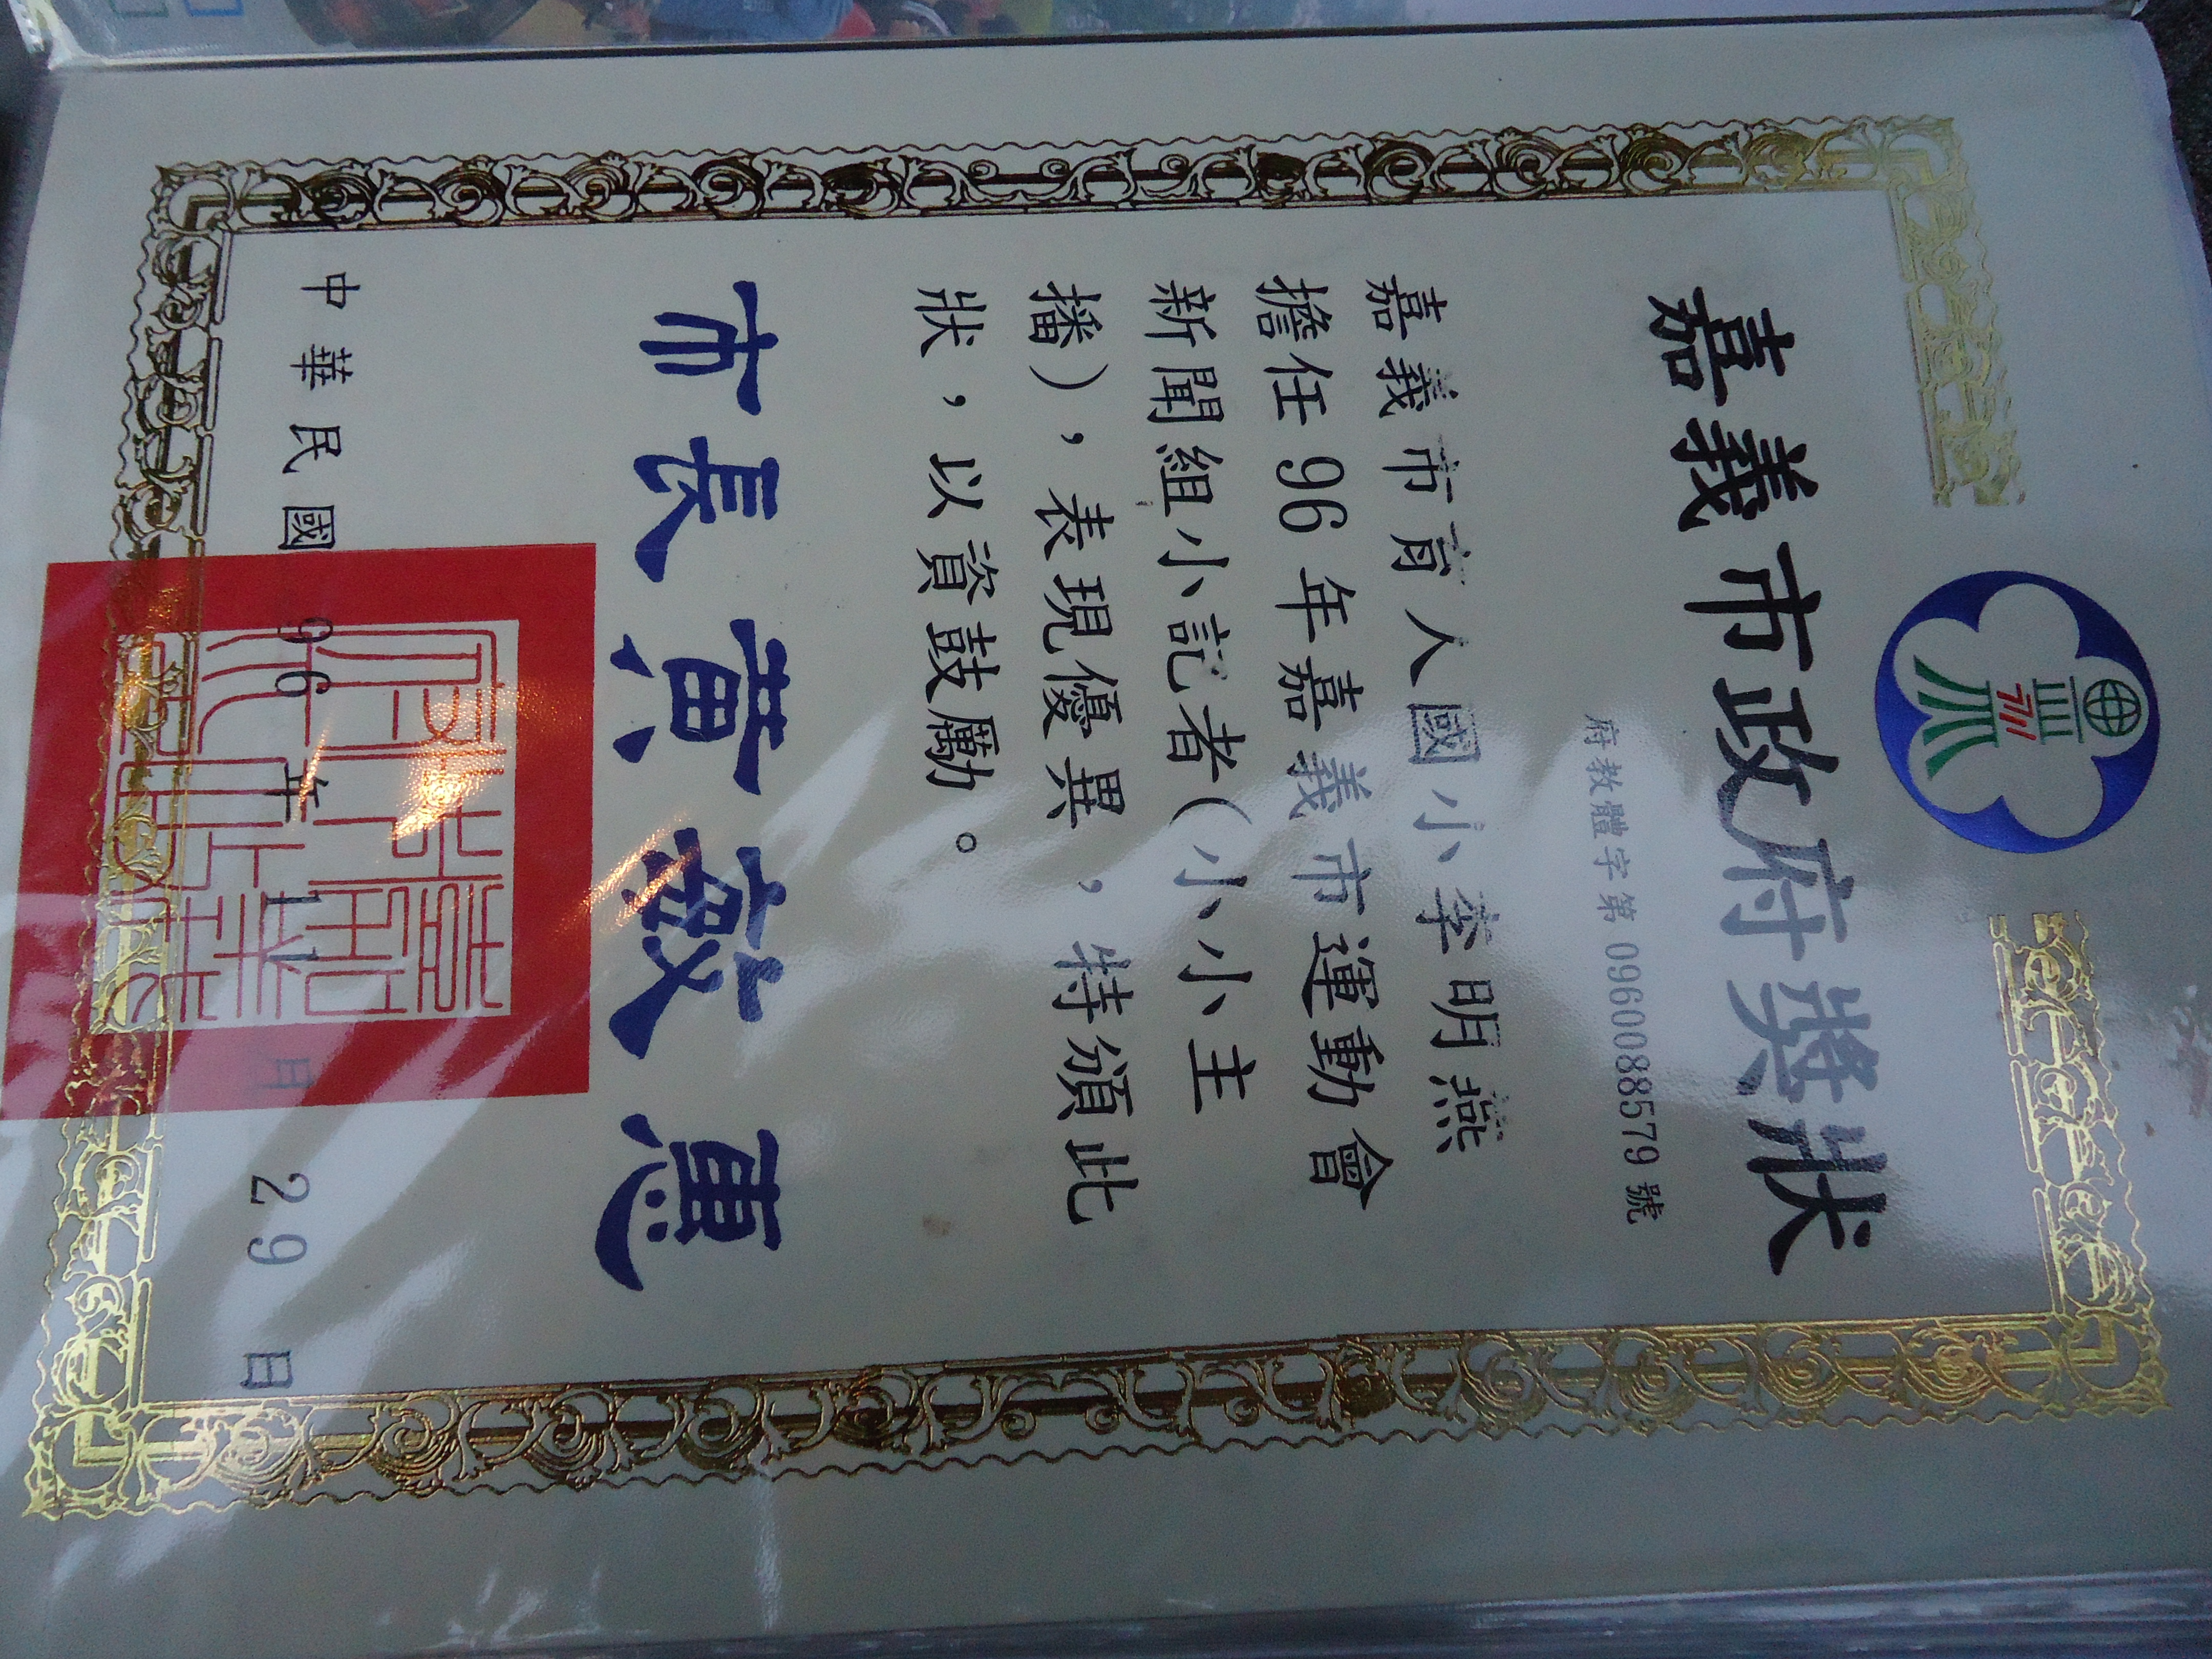 嘉義市政府獎狀
府教體字第 0960088579 號
嘉義市育人國小李明燕
擔任 96 年嘉義市運動會
新聞組小記者（小小主
播），表現優異，特頒此
狀，以資鼓勵。
市長黃敏惠
中華民國 96 年 11 月 29 日